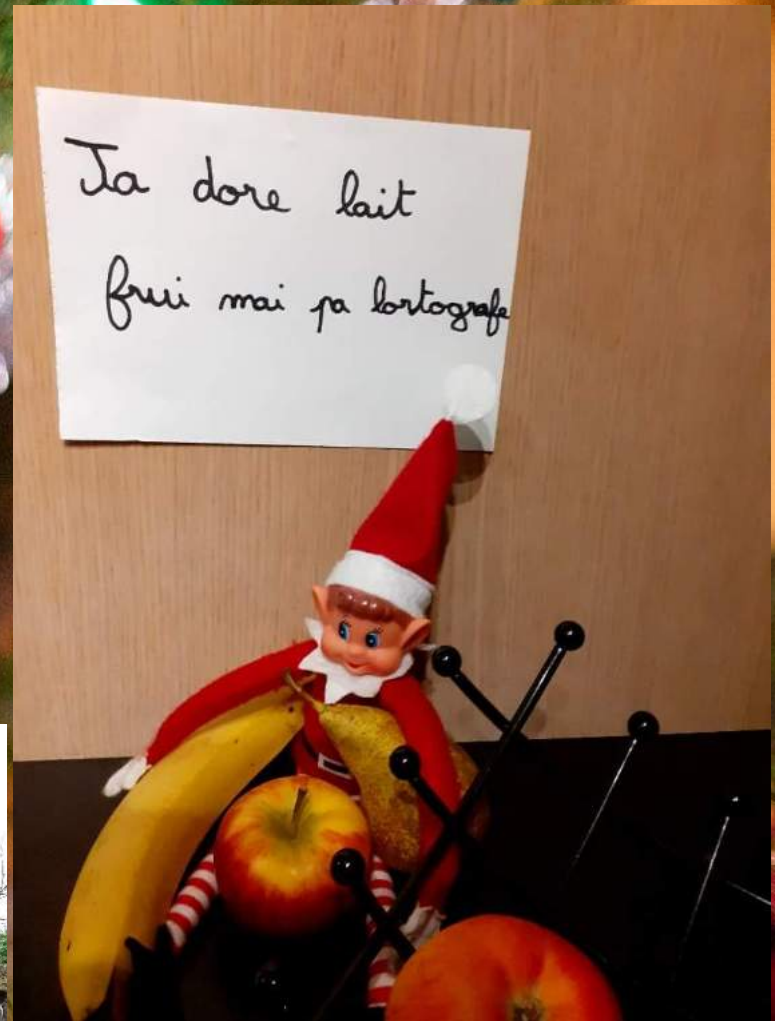 Ja dore lait
frui mai pa lortografe